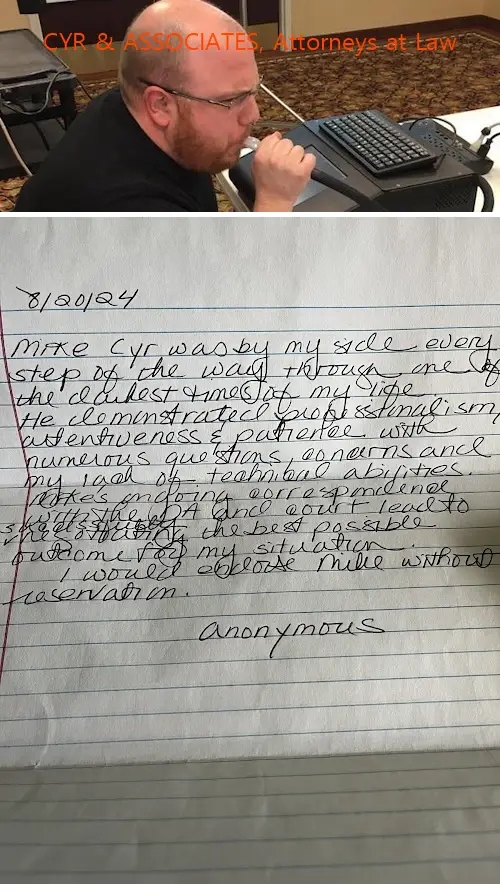 CYR & ASSOCIATES, Attorneys at Law
8/20/24
Mike Cyr was by my side every
step of the way through one of
the darkest times of my life
He demonstrated professionalism,
attentiveness & patience with
numerous questions, concerns and
my lack of technical abilities.
Mike's ongoing correspondence
with the DA and court lead to
successfully negotiating the best possible
outcome for my situation.
I would endorse Mike without
reservation.
anonymous